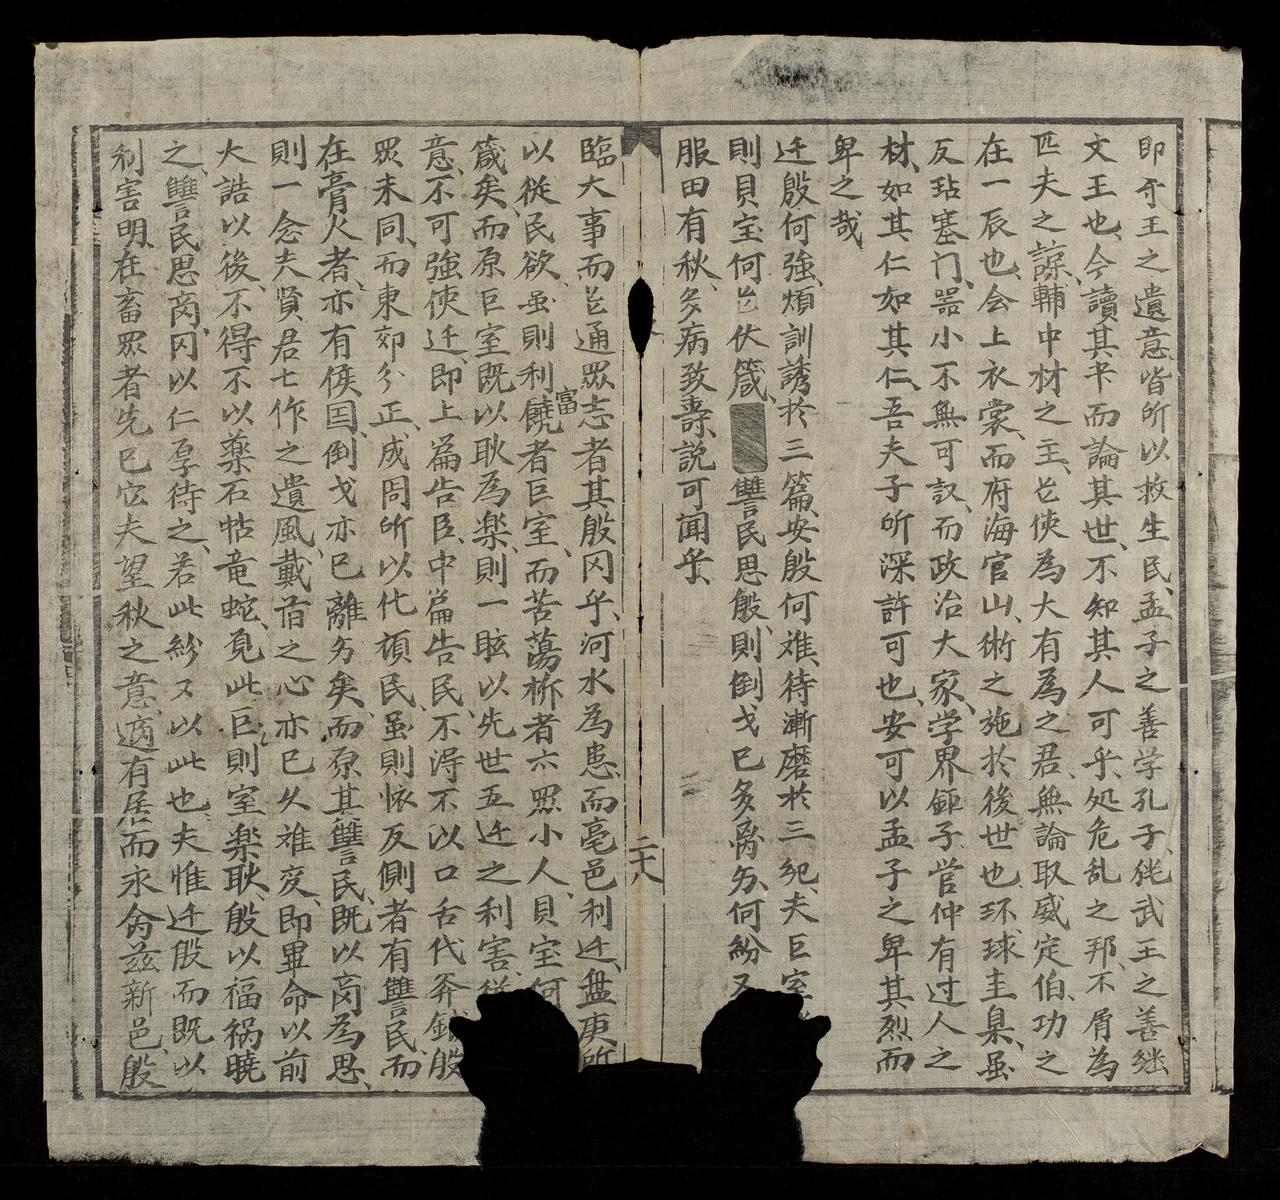 即夺王之遺意皆所以救生民孟子之善学孔子侂武王之善継
文王也今讀其书而論其世不知其人可乎処危乱之邦不屑為
匹夫之諒輔中材之主㠯使為大有為之君無論取威定伯功之
在一辰也会上衣裳而府海官山術之施於後世也环球圭臬虽
反玷塞门噐小不無可訍而政治大家学界鉅子管仲有过人之
材如其仁如其仁吾夫子所深許可也安可以孟子之卑其烈而
卑之哉
迁殷何強煩訓誘於三篇安殷何难待漸磨於三紀夫巨室
則貝宝何㠯伏箴讐民思殷則倒戈巳多离㐌何紛又
服田有秋多病致壽説可闻乎
臨大事而㠯通眾志者其殷罔乎河水為患而亳邑利迁盤庚所
以從民欲虽則利饒富者巨室而苦蕩柝者六眾小人貝宝何
箴矣而原巨室既以耿為楽則一眩以先世五迁之利害
意不可強使迁即上篇告臣中篇告民不得不以口舌代斧鉞殷
眾未同而東郊分正成周所以化頑民虽則怀反側者有讐民而
在膏火者亦有侯国倒戈亦巳離㐌矣而原其讐民既以商為思
則一念夫賢君七作之遺風戴商之心亦巳久难変即畢命以前
大誥以後不得不以藥石帖竜蛇覓此巨則室楽耿殷以福祸曉
之讐民思商罔以仁厚待之若此紛又以此也夫惟迁殷而既以
利害明在畜眾者先巳宅夫望秋之意適有居而永俞茲新邑殷
二十八